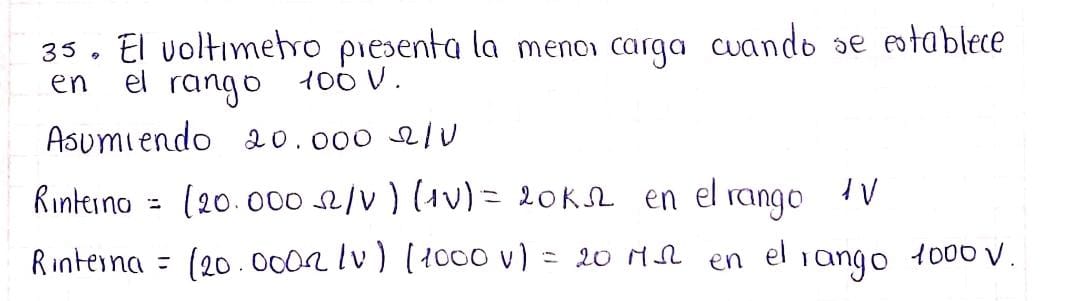 35. El voltimetro presenta la menor carga cuando se establece
en el rango 100 V.
Asumiendo 20.000 Ω/V
Rinterno = (20.000 Ω/V) (1V) = 20KΩ en el rango 1V
Rinterna = (20.000Ω/V) (1000 V) = 20 MΩ en el rango 1000 V.